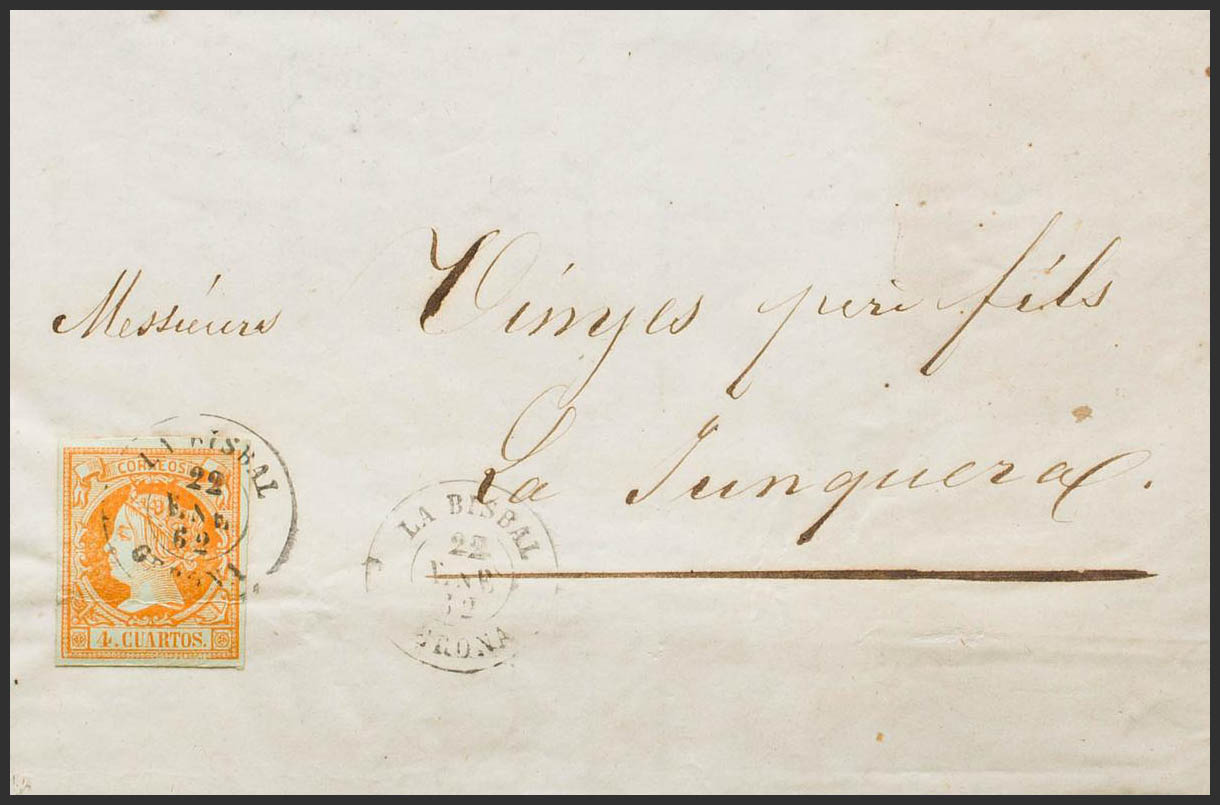 Messieurs Vinyes pere fils
La Junquera.
CORREOS
4. CUARTOS.
LA BISBAL
22
ENE
62
GERONA
LA BISBAL
22
ENE
62
GERONA